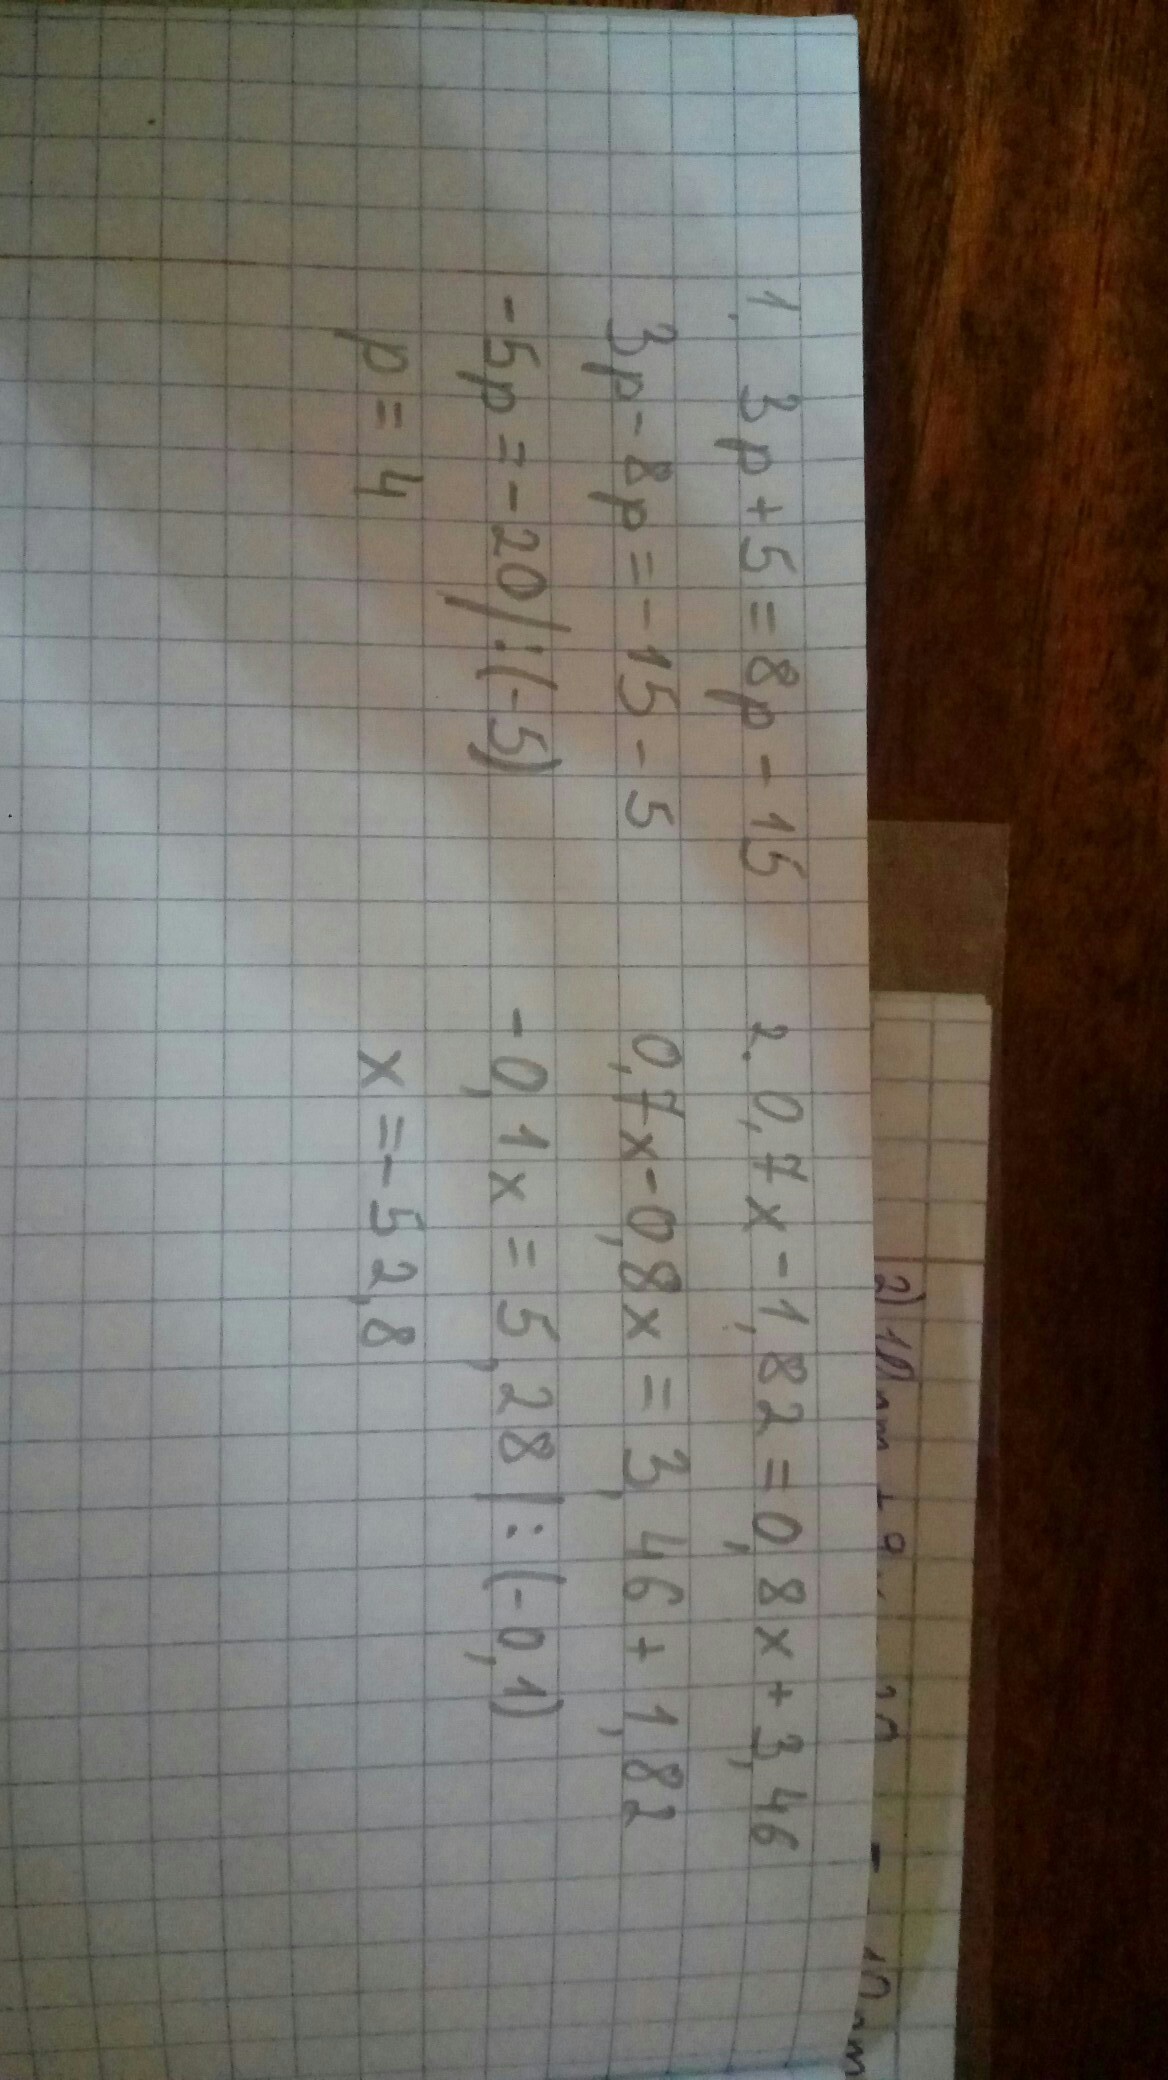 1. 3p+5=8p-15
3p-8p=-15-5
-5p=-20|:(-5)
p=4
2. 0,7x-1,82=0,8x+3,46
0,7x-0,8x=3,46+1,82
-0,1x=5,28|:(-0,1)
x=-52,8
2)